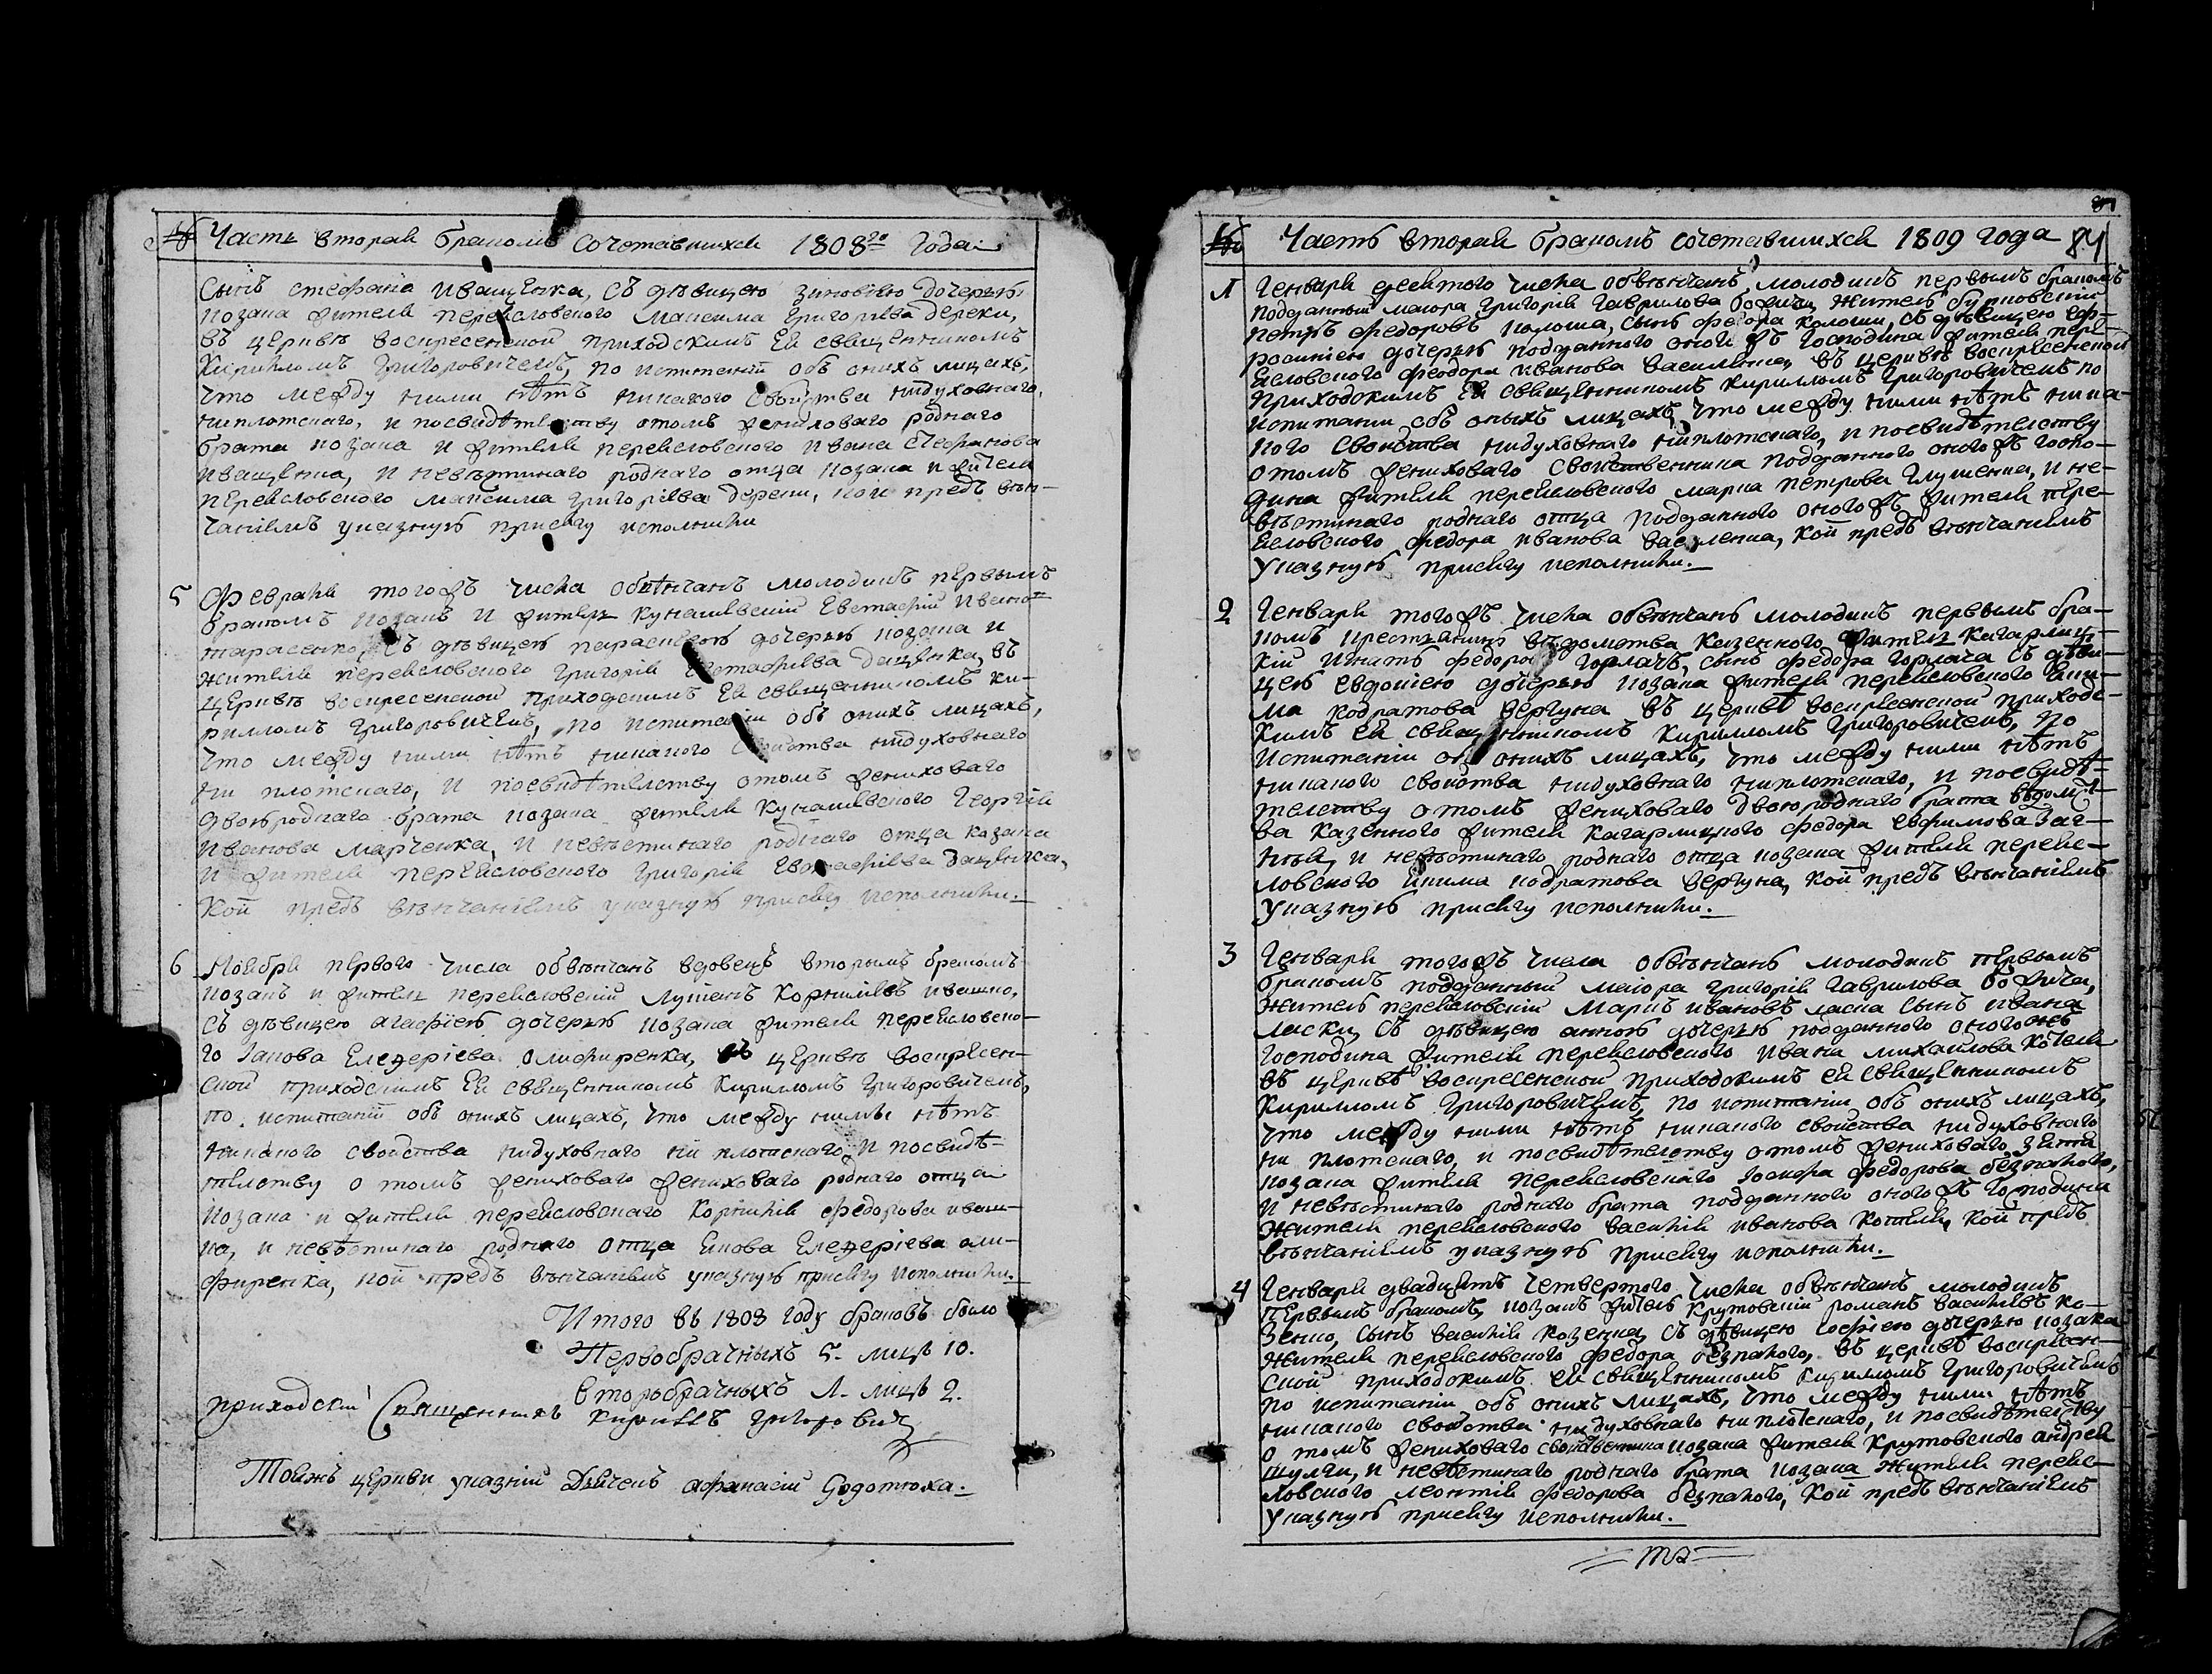 Часть вторая бракомъ сочетавшихся 1808го года
Сынъ стефана иващенка, съ девицею зиновіею дочерью
козака жителя переясловского максима григоріева дереки,
въ церкве воскресенской приходскимъ ея священникомъ
Кирилломъ Григоровичемъ, по испитаній объ онихъ лицахъ,
что между ними нѣтъ никакого свойства нидуховнаго,
ниплотскаго, и посвидѣтелству отомъ жениховаго роднаго
брата козака и жителя переясловского ивана стефанова
иващенка, и невѣстинаго роднаго отца козака и жителя
переясловского максима григоріева дереки, кои предъ вѣн-
чаніемъ указную присягу исполнили
5 Февраля тогожъ числа обвѣнчанъ молодикъ первымъ
бракомъ козакъ и житель кунашевскій Евстафій ивано
тарасенко, съ дѣвицею параскевою дочерью козака и
жителя переясловского григорія Евстафіева дащенка, въ
церкве воскресенской приходскимъ ея священникомъ ки-
рилломъ григоровичемъ, по испитаніи объ онихъ лицахъ,
что между ними нѣтъ никакого свойства нидуховнаго
ни плотскаго, и посвидѣтелству отомъ жениховаго
двоюроднаго брата козака жителя кунашевского Георгія
иванова марченка, и невѣстинаго роднаго отца козака
и жителя переясловского григорія Евстафіева дащенка,
кой предъ вѣнчаніемъ указную присягу исполнили.
6 Ноября первого числа обвѣнчанъ вдовецъ вторымъ бракомъ
козакъ и житель переясловскій лукіянъ Корніліевъ ивашко,
съ дѣвицею агафіею дочерью козака жителя переясловско-
го Іакова Елеѵеріева олифиренка, въ церкве воскресен-
ской приходскимъ ея священникомъ Кирилломъ Григоровичемъ,
по испитаніи объ онихъ лицахъ, что между ними нѣтъ
никакого свойства нидуховнаго ни плотскаго, и посвидѣ-
телству о томъ жениховаго жениховаго роднаго отца
козака и жителя переясловскаго Корнилія федорова иваш-
ка, и невѣстинаго роднаго отца Іякова Елеѵеріева оли-
фиренка, кой предъ вѣнчаніемъ указную присягу исполнили.
Итого въ 1808 году браковъ было
Первобрачныхъ 5. лицъ 10.
Второбрачныхъ 1. лицъ 2.
приходскій Священникъ Кириллъ григоровичъ
Тояжъ церкви указній Дьячекъ афанасій

Часть вторая бракомъ сочетавшихся 1809 года 84
1 Генваря десятого числа обвѣнчанъ молодикъ первымъ бракомъ
подданный маіора григорія гаврилова божича, житель бурковскій
петръ федоровъ калоша, сынъ федора калоши, съ дѣвицею еф-
росиніею дочерью подданного оногожъ господина жителя пере-
ясловского феодора иванова василенка, въ церкве воскресенской
приходскимъ ея священникомъ кирилломъ григоровичемъ по
испитаніи объ оныхъ лицахъ, что между ними нѣтъ ника-
кого свойства нидуховнаго ниплотскаго, и посвидѣтелству
отомъ жениховаго свойственника подданного оногожъ госпо-
дина жителя переясловского марка петрова глушенка, и не-
вѣстинаго роднаго отца подданного оногожъ жителя пере-
ясловского федора иванова василенка, кой предъ вѣнчаніемъ
указную присягу исполнили.
2 Генваря тогожъ числа обвѣнчанъ молодикъ первымъ бра-
комъ крестянинъ вѣдомства казенного житель кагарлиц-
кій игнатъ федоровъ горлачъ, сынъ федора горлача съ дѣви-
цею евдокіею дочерью козака жителя переясловского Еки-
ма кодратова вергуна въ церквѣ воскресенской приходс-
кимъ ея священникомъ кирилломъ григоровичемъ, по
испитаніи объ онихъ лицахъ, что между ними нѣтъ
никакого свойства нидуховнаго ниплотскаго, и посвидѣ-
телству отомъ жениховаго двоюроднаго брата вѣдомст-
ва казенного жителя кагарлицкого федора евфимова
и невѣстинаго роднаго отца козака жителя переяс-
ловского Екима кодратова вергуна, кой предъ вѣнчаніемъ
указную присягу исполнили.
3 Генваря тогожъ числа обвѣнчанъ молодикъ первымъ
бракомъ подданный маіора григорія гаврилова божича,
житель переясловскій Маркъ ивановъ ласка сынъ ивана
ласки, съ дѣвицею анною дочерью подданного оногожъ
господина жителя переясловского ивана михаилова котеля
въ церквѣ воскресенской приходскимъ ея священникомъ
Кирилломъ Григоровичемъ, по испитаніи объ онихъ лицахъ,
что между ними нѣтъ никакого свойства нидуховнаго
ни плотскаго, и посвидѣтелству отомъ жениховаго зятя
козака жителя переясловскаго Іосифа федорова безпалого,
и невѣстинаго роднаго брата подданного оногожъ господина
жителя переясловского василія иванова котеля, кой предъ
вѣнчаніемъ указную присягу исполнили.
4 Генваря двадцять четвертого числа обвѣнчанъ молодикъ
первымъ бракомъ, козакъ житель крутовскій романъ василіевъ ко-
зенко, сынъ василія козенка, съ дѣвицею софіею дочерью козака
жителя переясловского федора безпалого, въ церквѣ воскресен-
ской приходскимъ ея священникомъ кирилломъ григоровичемъ
по испитаніи объ онихъ лицахъ, что между ними нѣтъ
никакого свойства нидуховнаго ниплотскаго, и посвидѣтелству
о томъ жениховаго свойственника козака жителя крутовского андрея
шулги, и невѣстинаго роднаго брата козака жителя переяс-
ловского леонтія федорова безпалого, кой предъ вѣнчаніемъ
указную присягу исполнили.